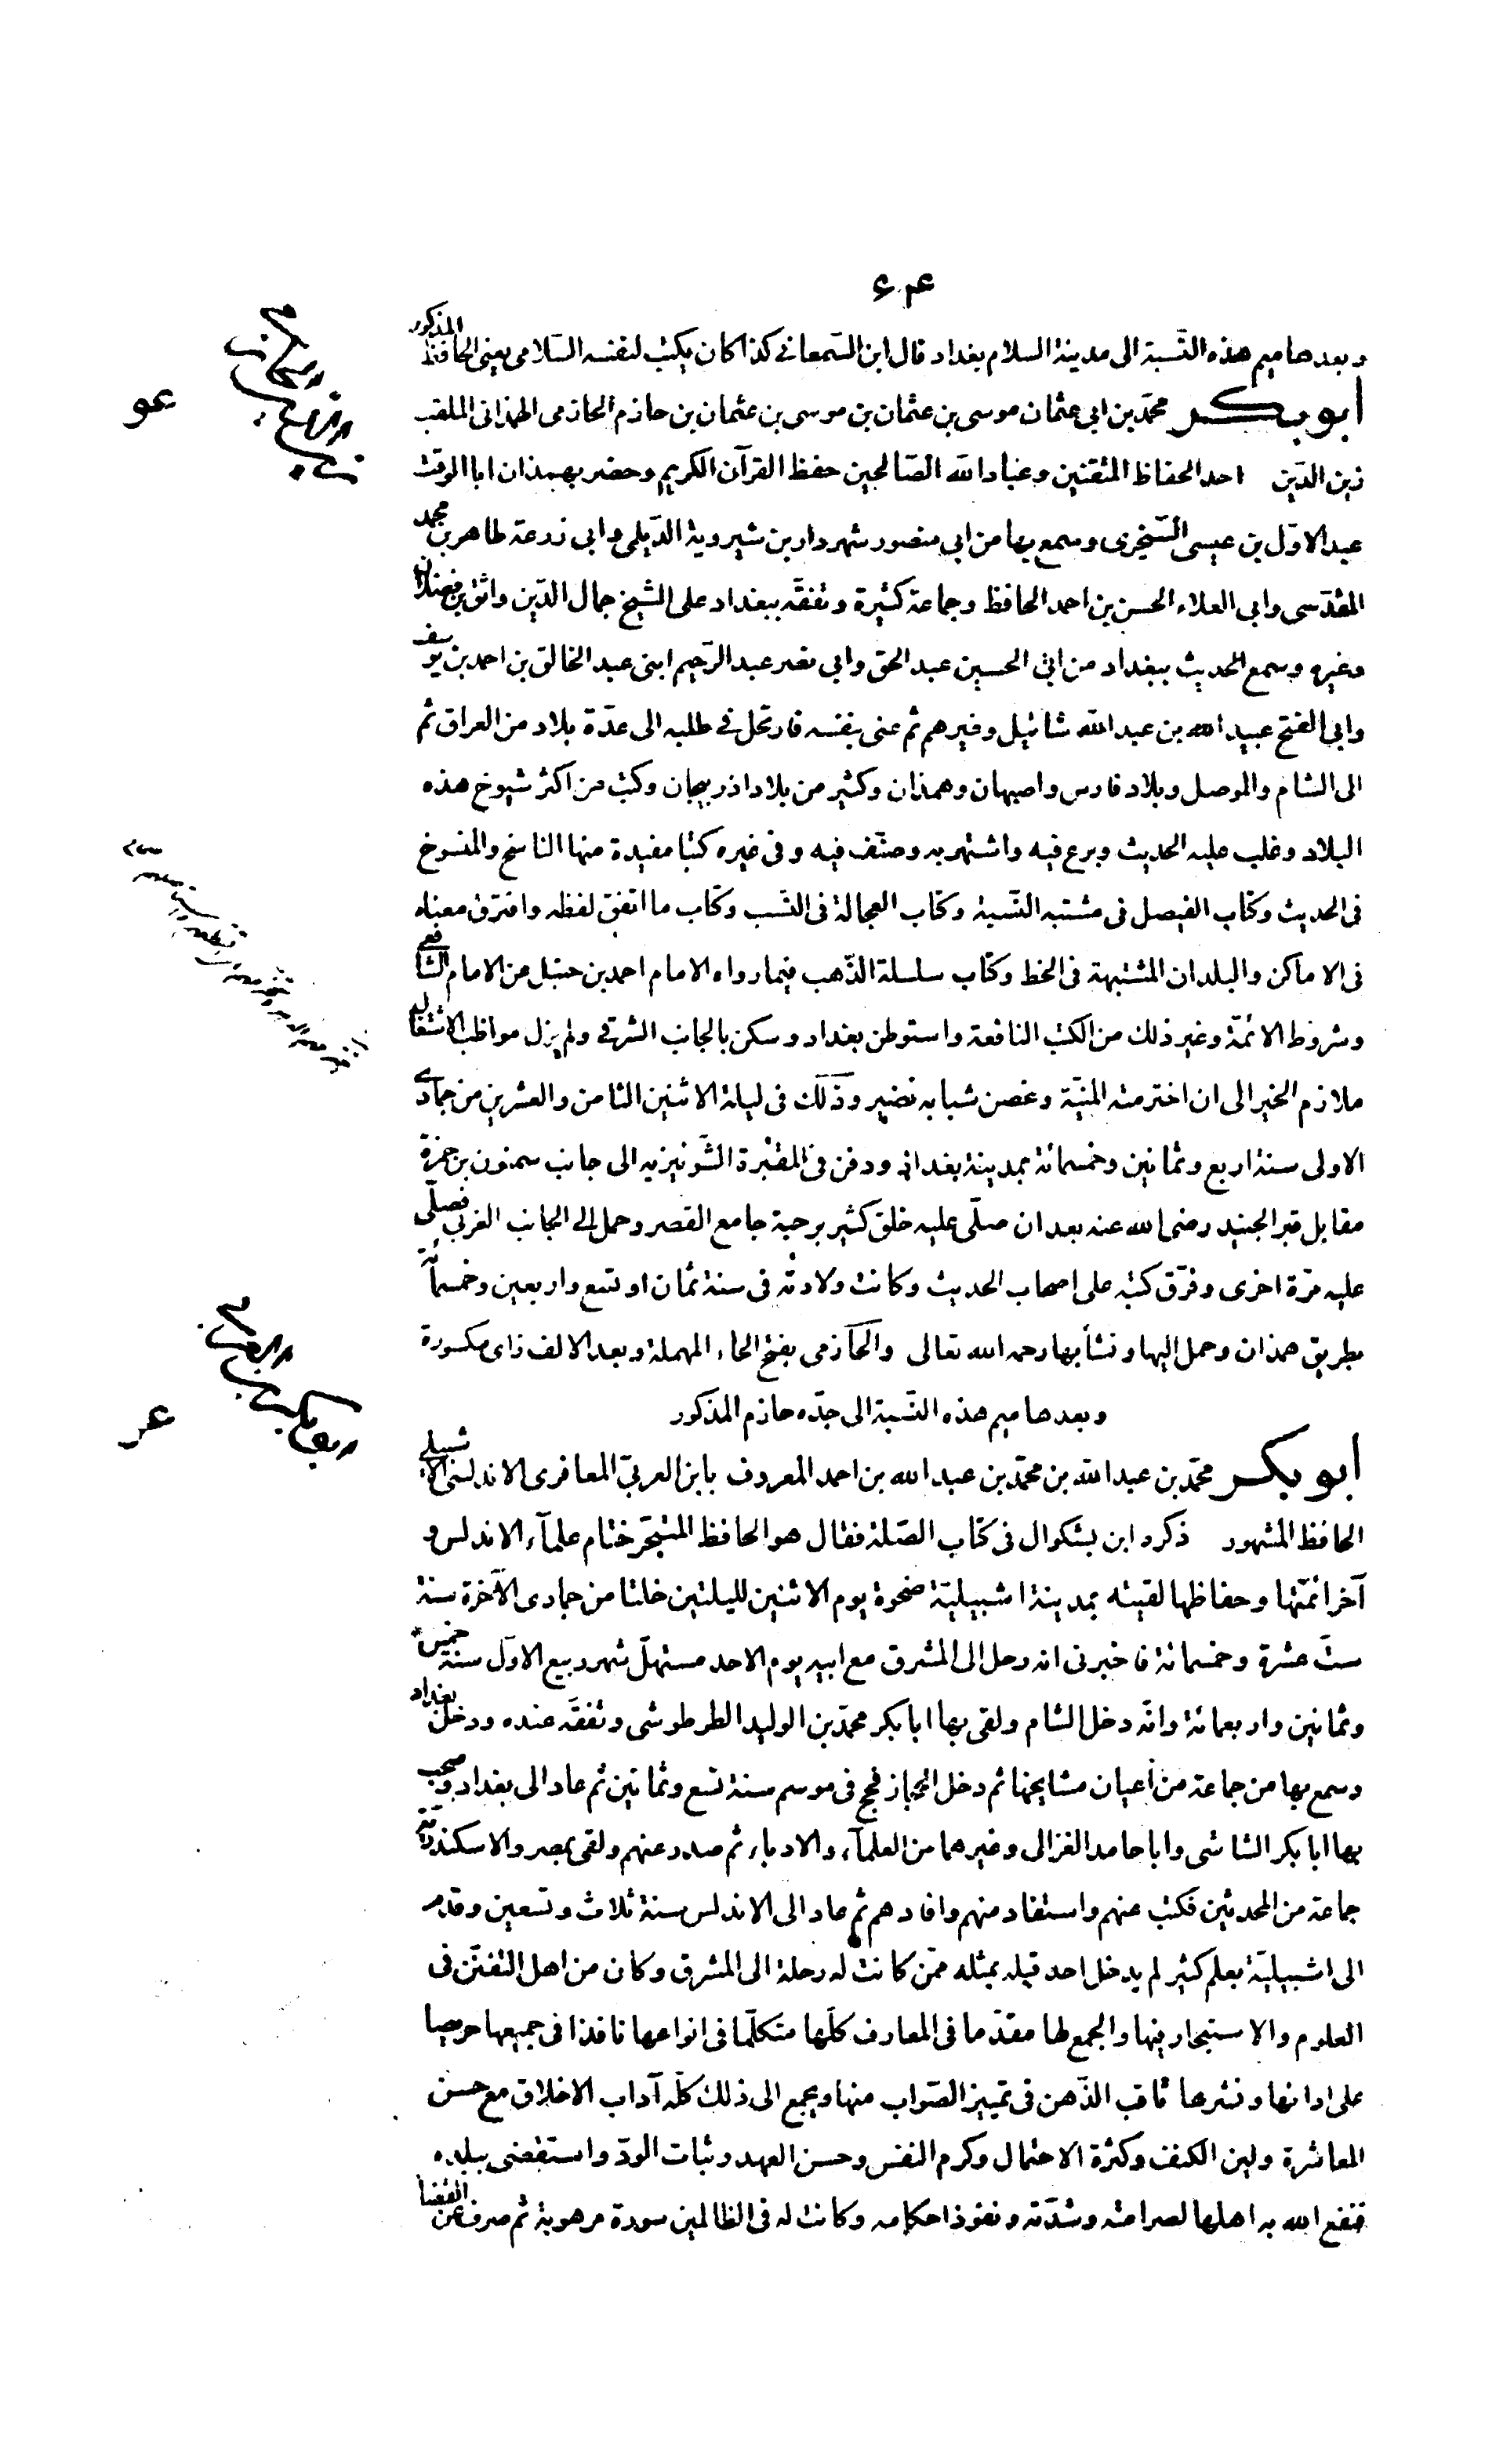 ٤٠٤
وبعدها ميم هذه النّسبة الى مدينة السلام بغداد قال ابن السّمعانى كذا كان يكتب لنفسه السّلامى يعنى الحافظ المذكور
أبو بكر محمّد بن ابى عثمان موسى بن عثمان بن موسى بن عثمان بن حازم الحازمى الهمذانى الملقب
زين الدّين احد الحفاظ المتقنين وعباد الله الصّالحين حفظ القرآن الكريم وحضر بهمذان ابا الوقت
عبد الاوّل بن عيسى السّجزى وسمع بها من ابى منصور شهردار بن شيروية الدّيلمى وابى زرعة طاهر بن محمد
المقدّسى وابى العلاء الحسن بن احمد الحافظ وجماعة كثيرة وتفقّه ببغداد على الشيخ جمال الدّين واثق بن فضلان
وغيره وسمع الحديث ببغداد من ابى الحسين عبد الحق وابى نصر عبد الرّحيم ابنى عبد الخالق بن احمد بن يوسف
وابى الفتح عبيد الله بن عبد الله شاتيل وغيرهم ثم عنى بنفسه فارتحل فى طلبه الى عدّة بلاد من العراق ثم
الى الشام والموصل وبلاد فارس واصبهان وهمذان وكثير من بلاد اذربيجان وكتب من اكثر شيوخ هذه
البلاد وغلب عليه الحديث وبرع فيه واشتهر به وصنّف فيه وفى غيره كتبا مفيدة منها الناسخ والمنسوخ
فى الحديث وكتاب الفيصل فى مشتبه النّسبة وكتاب العجالة فى النّسب وكتاب ما اتفق لفظه وافترق معناه
فى الاماكن والبلدان المشتبهة فى الخط وكتاب سلسلة الذّهب فيما رواه الامام احمد بن حنبل عن الامام الشافعى
وشروط الائمّة وغير ذلك من الكتب النافعة واستوطن بغداد وسكن بالجانب الشرقى ولم يزل مواظب الاشتغال
ملازم الخير الى ان اخترمته المنيّة وغصن شبابه نضير وذلك فى ليلة الاثنين الثامن والعشرين من جمادى
الاولى سنة اربع وثمانين وخمسمائة بمدينة بغداد ودفن فى المقبرة الشّونيزيه الى جانب سمنون بن حمزة
مقابل قبر الجنيد رضى الله عنه بعد ان صلّى عليه خلق كثير برحبة جامع القصر وحمل الى الجانب الغربى فصلّى
عليه مرّة اخرى وفرّق كتبه على اصحاب الحديث وكانت ولادته فى سنة ثمان او تسع واربعين وخمسمائة
بطريق همذان وحمل اليها ونشأ بها رحمه الله تعالى والحآزمى بفتح الحاء المهملة وبعد الالف زاى مكسورة
وبعدها ميم هذه النّسبة الى جدّه حازم المذكور
ابو بكر محمّد بن عبد الله بن محمّد بن عبد الله بن احمد المعروف بابن العربىّ المعافرى الاندلسى الاشبيلى
الحافظ المشهور ذكره ابن بشكوال فى كتاب الصّلة فقال هو الحافظ المتبحّر ختام علمآء الاندلس و
آخر ائمّتها وحفاظها لقيته بمدينة اشبيليّة ضحوة يوم الاثنين لليلتين خلتا من جمادى الآخرة سنة
ستّ عشرة وخمسمائة فاخبرنى انه رحل الى المشرق مع ابيه يوم الاحد مستهلّ شهر ربيع الاوّل سنة خمس
وثمانين واربعمائة وانّه دخل الشام ولقى بها ابا بكر محمّد بن الوليد الطرطوشى وتفقّه عنده ودخل بغداد
وسمع بها من جماعة من أعيان مشايخها ثم دخل الحجاز فحج فى موسم سنة تسع وثمانين ثم عاد الى بغداد وصحب
بها ابا بكر الشاشى وابا حامد الغزالى وغيرهما من العلمآء والادباء ثم صدر عنهم ولقى بمصر والاسكندريّة
جماعة من المحدثين فكتب عنهم واستفاد منهم وافادهم ثم عاد الى الاندلس سنة ثلاث وتسعين وقدم
الى اشبيليّة بعلم كثير لم يدخل احد قبله بمثله ممّن كانت له رحلة الى المشرق وكان من اهل التفنّن فى
العلوم والاستبحار فيها والجمع لها مقدّما فى المعارف كلّها متكلّما فى انواعها نافذا فى جميعها حريصا
على ادائها ونشرها ثاقب الذّهن فى تمييز الصّواب منها ويجمع الى ذلك كلّه آداب الاخلاق مع حسن
المعاشرة ولين الكنف وكثرة الاحتمال وكرم النفس وحسن العهد وثبات الودّ واستقضى ببلده
فنفع الله به اهلها لصرامته وشدّته ونفوذ احكامه وكانت له فى الظالمين سورة مرهوبة ثم صرف عن القضا